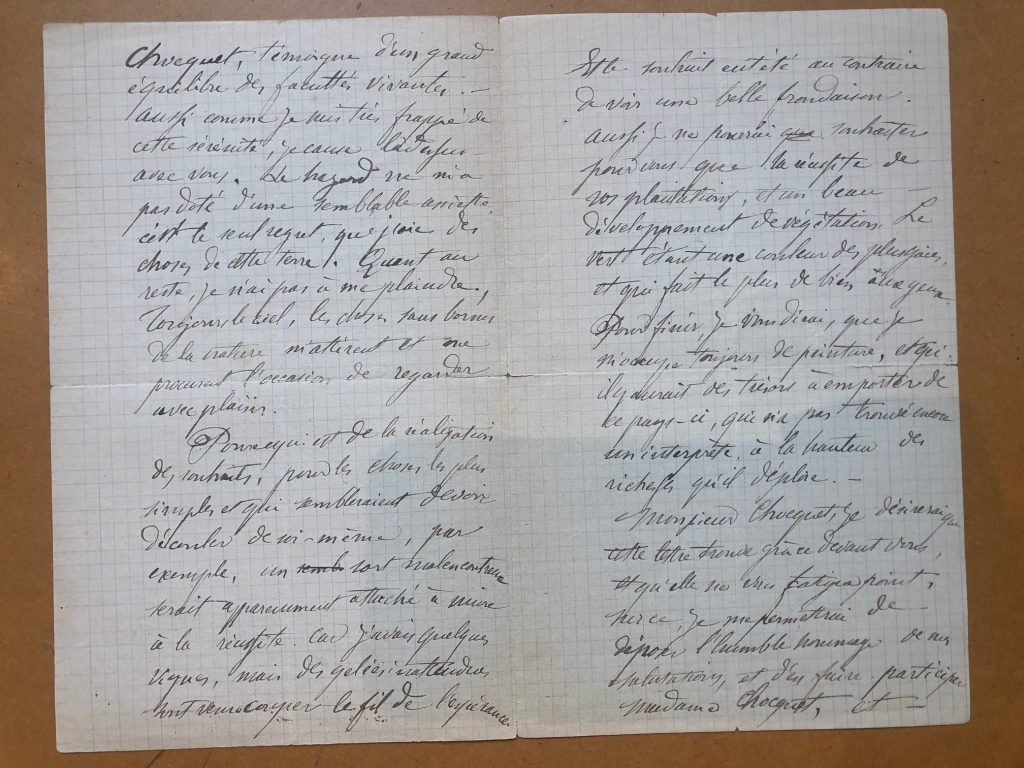 Chocquet, témoigne d'un grand
équilibre des facultés vivantes. —
Aussi comme je suis très frappé de
cette sérénité, je cause là dessus
avec vous. Le hasard ne m'a
pas doté d'une semblable assiette,
c'est le seul regret, que j'aie des
choses de cette terre. Quant au
reste, je n'ai pas à me plaindre,
Toujours le ciel, les choses sans bornes
de la nature m'attirent et me
procurent l'occasion de regarder
avec plaisir.
Pour ce qui est de la réalisation
de souhaits, pour les choses les plus
simples et qui sembleraient devoir
découler de soi-même, par
exemple, un sort malencontreux
serait apparemment attaché à nuire
à la réussite. car j'avais quelques
vignes, mais des gelées inattendues
sont venues couper le fil de l'espérance
Et le souhait eut été au contraire
de voir une belle frondaison.
Aussi je ne pourrai que souhaiter
pour vous que la réussite de
vos plantations, et un beau —
développement de végétation. Le
vert étant une couleur des plus gaies,
et qui fait le plus de bien aux yeux.
Pour finir, je vous dirai, que je
m'occupe toujours de peinture, et qu'
il y aurait des trésors à emporter de
ce pays-ci, qui n'a pas trouvé encore
un interprète, à la hauteur des
richesses qu'il déploie. —
Monsieur Chocquet, je désirerais que
cette lettre trouve grâce devant vous,
et qu'elle ne vous fatigea point,
sur ce, je me permettrai de —
déposer l'humble hommage de mes
salutations, et d'en faire participer
madame Chocquet, et —